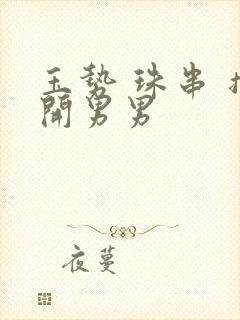 玉势 珠串
開男男
夜蔓